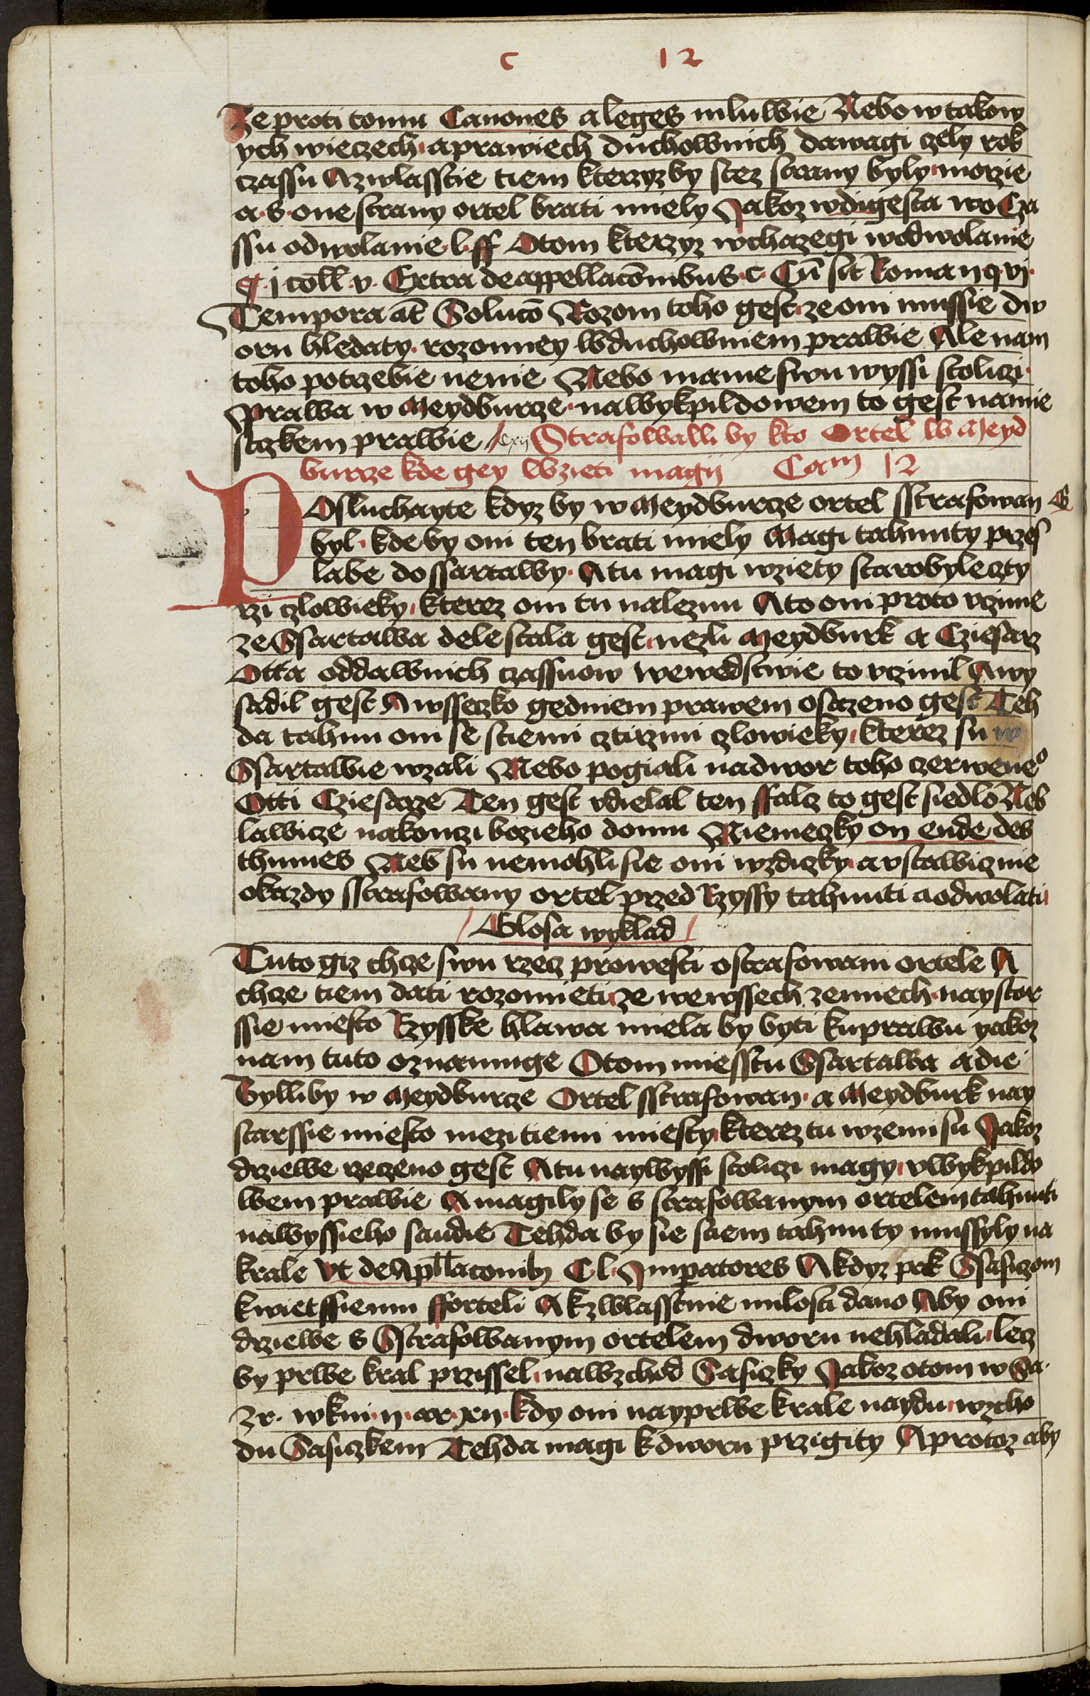 c 12
Ze proti tomu Canones a leges mluwie Nebo w takow
ych wieczech a prawiech duchownich dawagi czely rok
czassu A zwlasscie tiem kterzyz by s tez strany byly morzie
a s one strany ortel brati miely Jakoz w digesta wo Cza
ssu odwolanie l ff O tom kterzyz w chazegi w odwolanie
Extra de appellaconibus c Cu sit Roman
Tempora at Soluco Rozom toho gest ze oni mussie dw
oru hledaty rozomiey w duchowniem prawie Ale nam
toho potrzebie nenie Nebo mame swu wyssi stoliczi
Prawa w Meydburcze na wykpildowem to gest na mie
stczkem prawie Strafowalli by kto Ortel w Meyd
burcze kde gey wzieti magij Cam 12
POsluchayte kdyz by w Meydburcze ortel sstrafowan
byl kde by oni ten brati miely Magi tahnuty przes
labe do ssartawy A tu magi wziety starobyle czty
rzi czlowieky kterez oni tu naleznu A to oni proto vczinie
ze Ssartawa dele stala gest nezli Meydburk a Cziesarz
Otta od dawnich czassuow wewedstwie to vczinil A wy
sadil gest A wsseczko gedniem prawem osazeno gest Teh
da tahnu oni se stiemi cztirzmi czlowieky kterez su w
Ssartawie wzali Nebo pogiali na dwor toho czerweneo
Otti Cziesarze Ten gest vdielal ten ffalcz to gest siedlo Neb
lawicze na konczi bozieho domu Niemeczky on ende des
thumes Neb su nemohli sie oni wzdiczky a vstawicznie
o kazdy sstrafowany ortel przed Rzyssy tahnuti a odwolati
Glosa wyklad
Tuto giz chcze swu rzecz prowesti o strafowani ortele A
chcze tiem dati rozomieti ze we wssech zemiech naystar
ssie miesto Rzysske hlawa miela by byti ku prawu yakoz
nam tuto oznamuge O tom miesstu Ssartawa a die
Bylliby w Meydburcze Ortel sstrafowan a Meydburk nay
starssie miesto mezi tiemi miesty kterez tu w zemi su Jakoz
drziewe rzeczeno gest A tu naywyssi stoliczi magy v wykpildo
wem prawie A magily se s strafowanym ortelem tahnuti
na wyssieho saudie Tehda by sie s tiem tahnuty mussyly na
krale Vt de Apllaconib C l Imperatores A kdyz pak Sasiczom
kwietssiemu fforteli A k zwlasstnie milosti dano Aby oni
drziewe s Sstrafowanym ortelem dworu nehladali lecz
by prwe kral przissel na wzchod Sasiczky Jakoz o tom w Sa
kdy oni nayprwe krale naydu w zcho
du Sasiczkem Tehda magi k dworu przigity A protoz aby